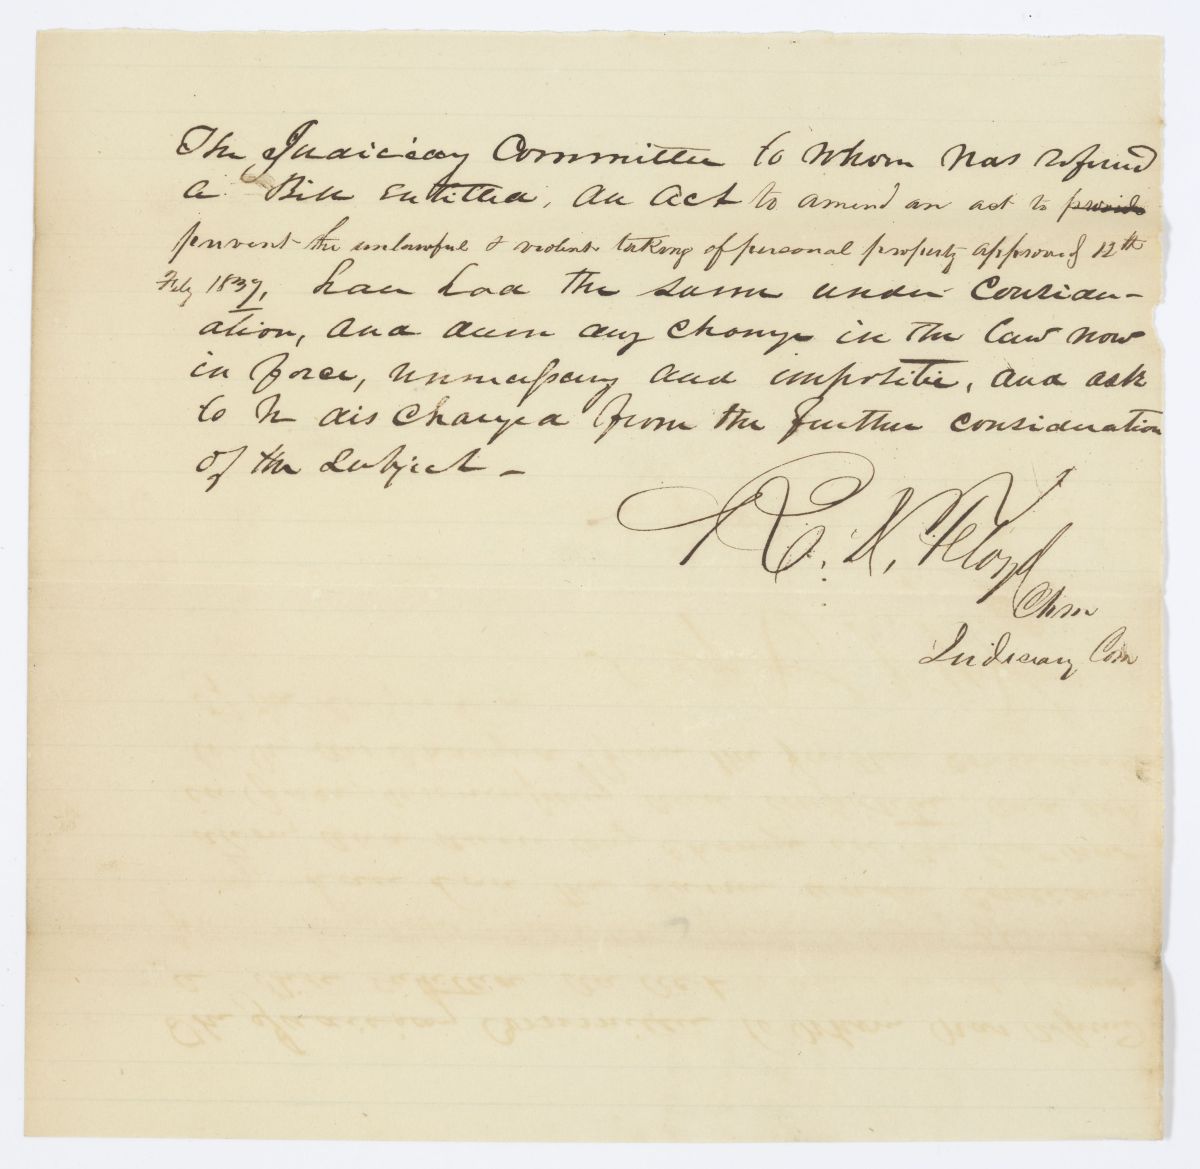 The Judiciary Committee to whom was referred
a Bill entitled, An Act to amend an act to provide
prevent the unlawful & violent taking of personal property approved 12th
Feby 1839, have had the same under consider-
ation, and deem any change in the law now
in force, unnecessary and impolitic, and ask
to be discharged from the further consideration
of the subject –
Floyd
Chm
Judiciary Com